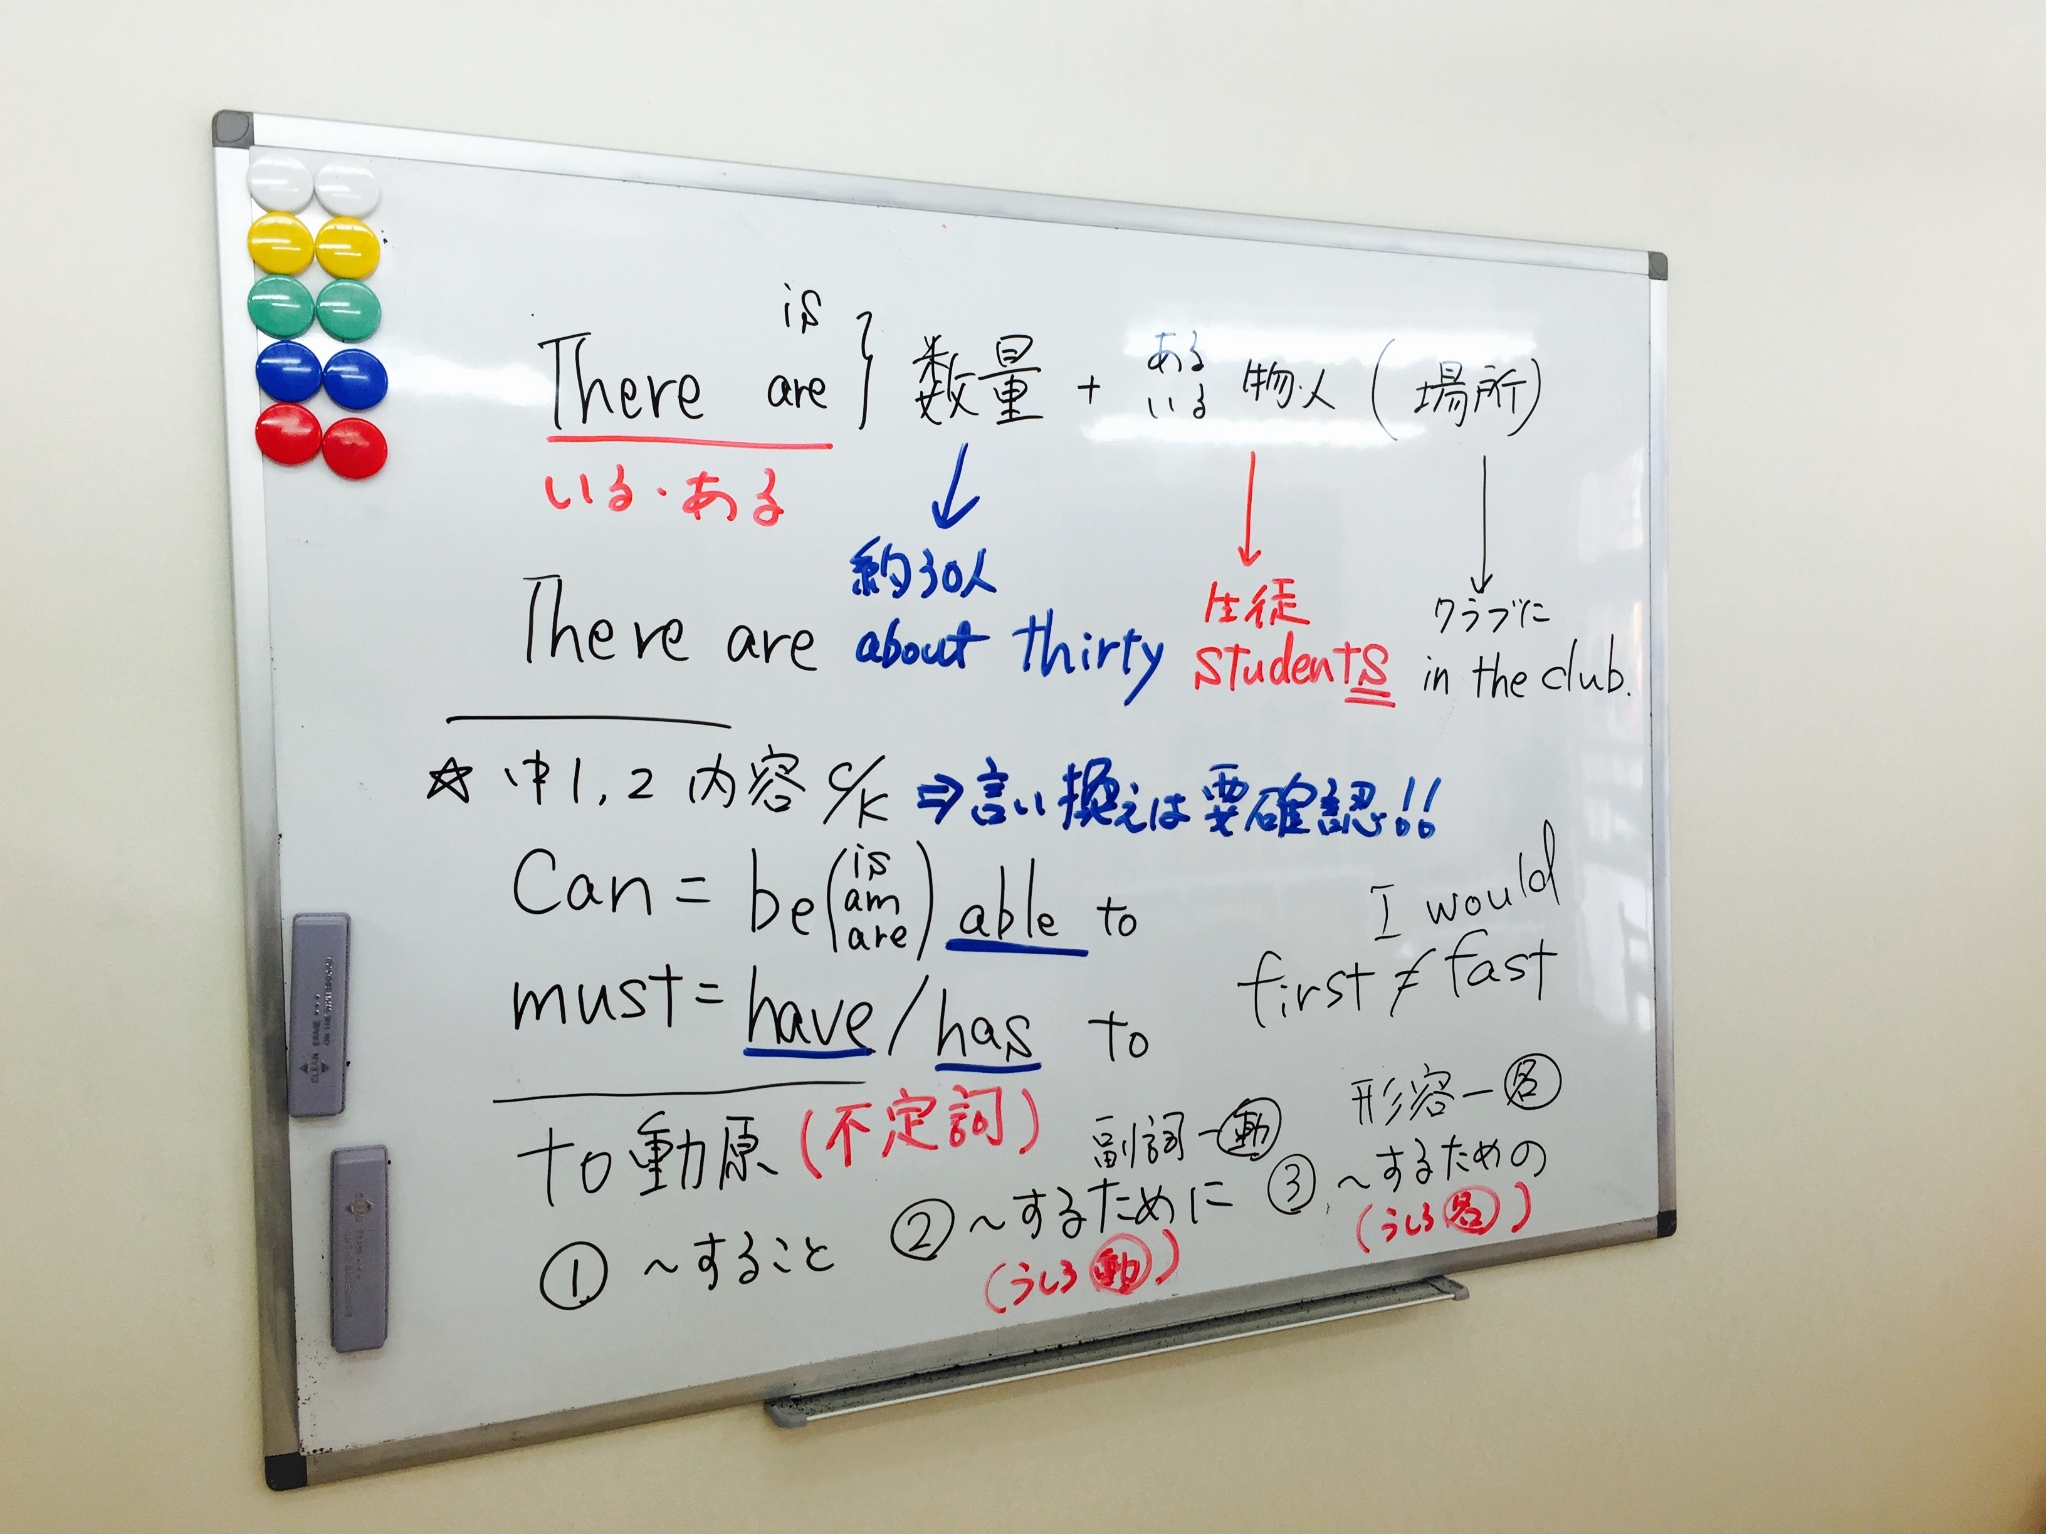 is
There are } 数量 + ある いる 物・人 (場所)
いる・ある
約30人 生徒 クラブに
There are about thirty students in the club.
☆ 中1,2 内容 C/K ⇒ 言い換えは要確認!!
Can = be (is am are) able to
must = have / has to
I would
first ≠ fast
to 動原 (不定詞)
副詞-動
形容-名
① ~すること ② ~するために ③ ~するための
(うしろ動) (うしろ名)
CLEAN ERASE